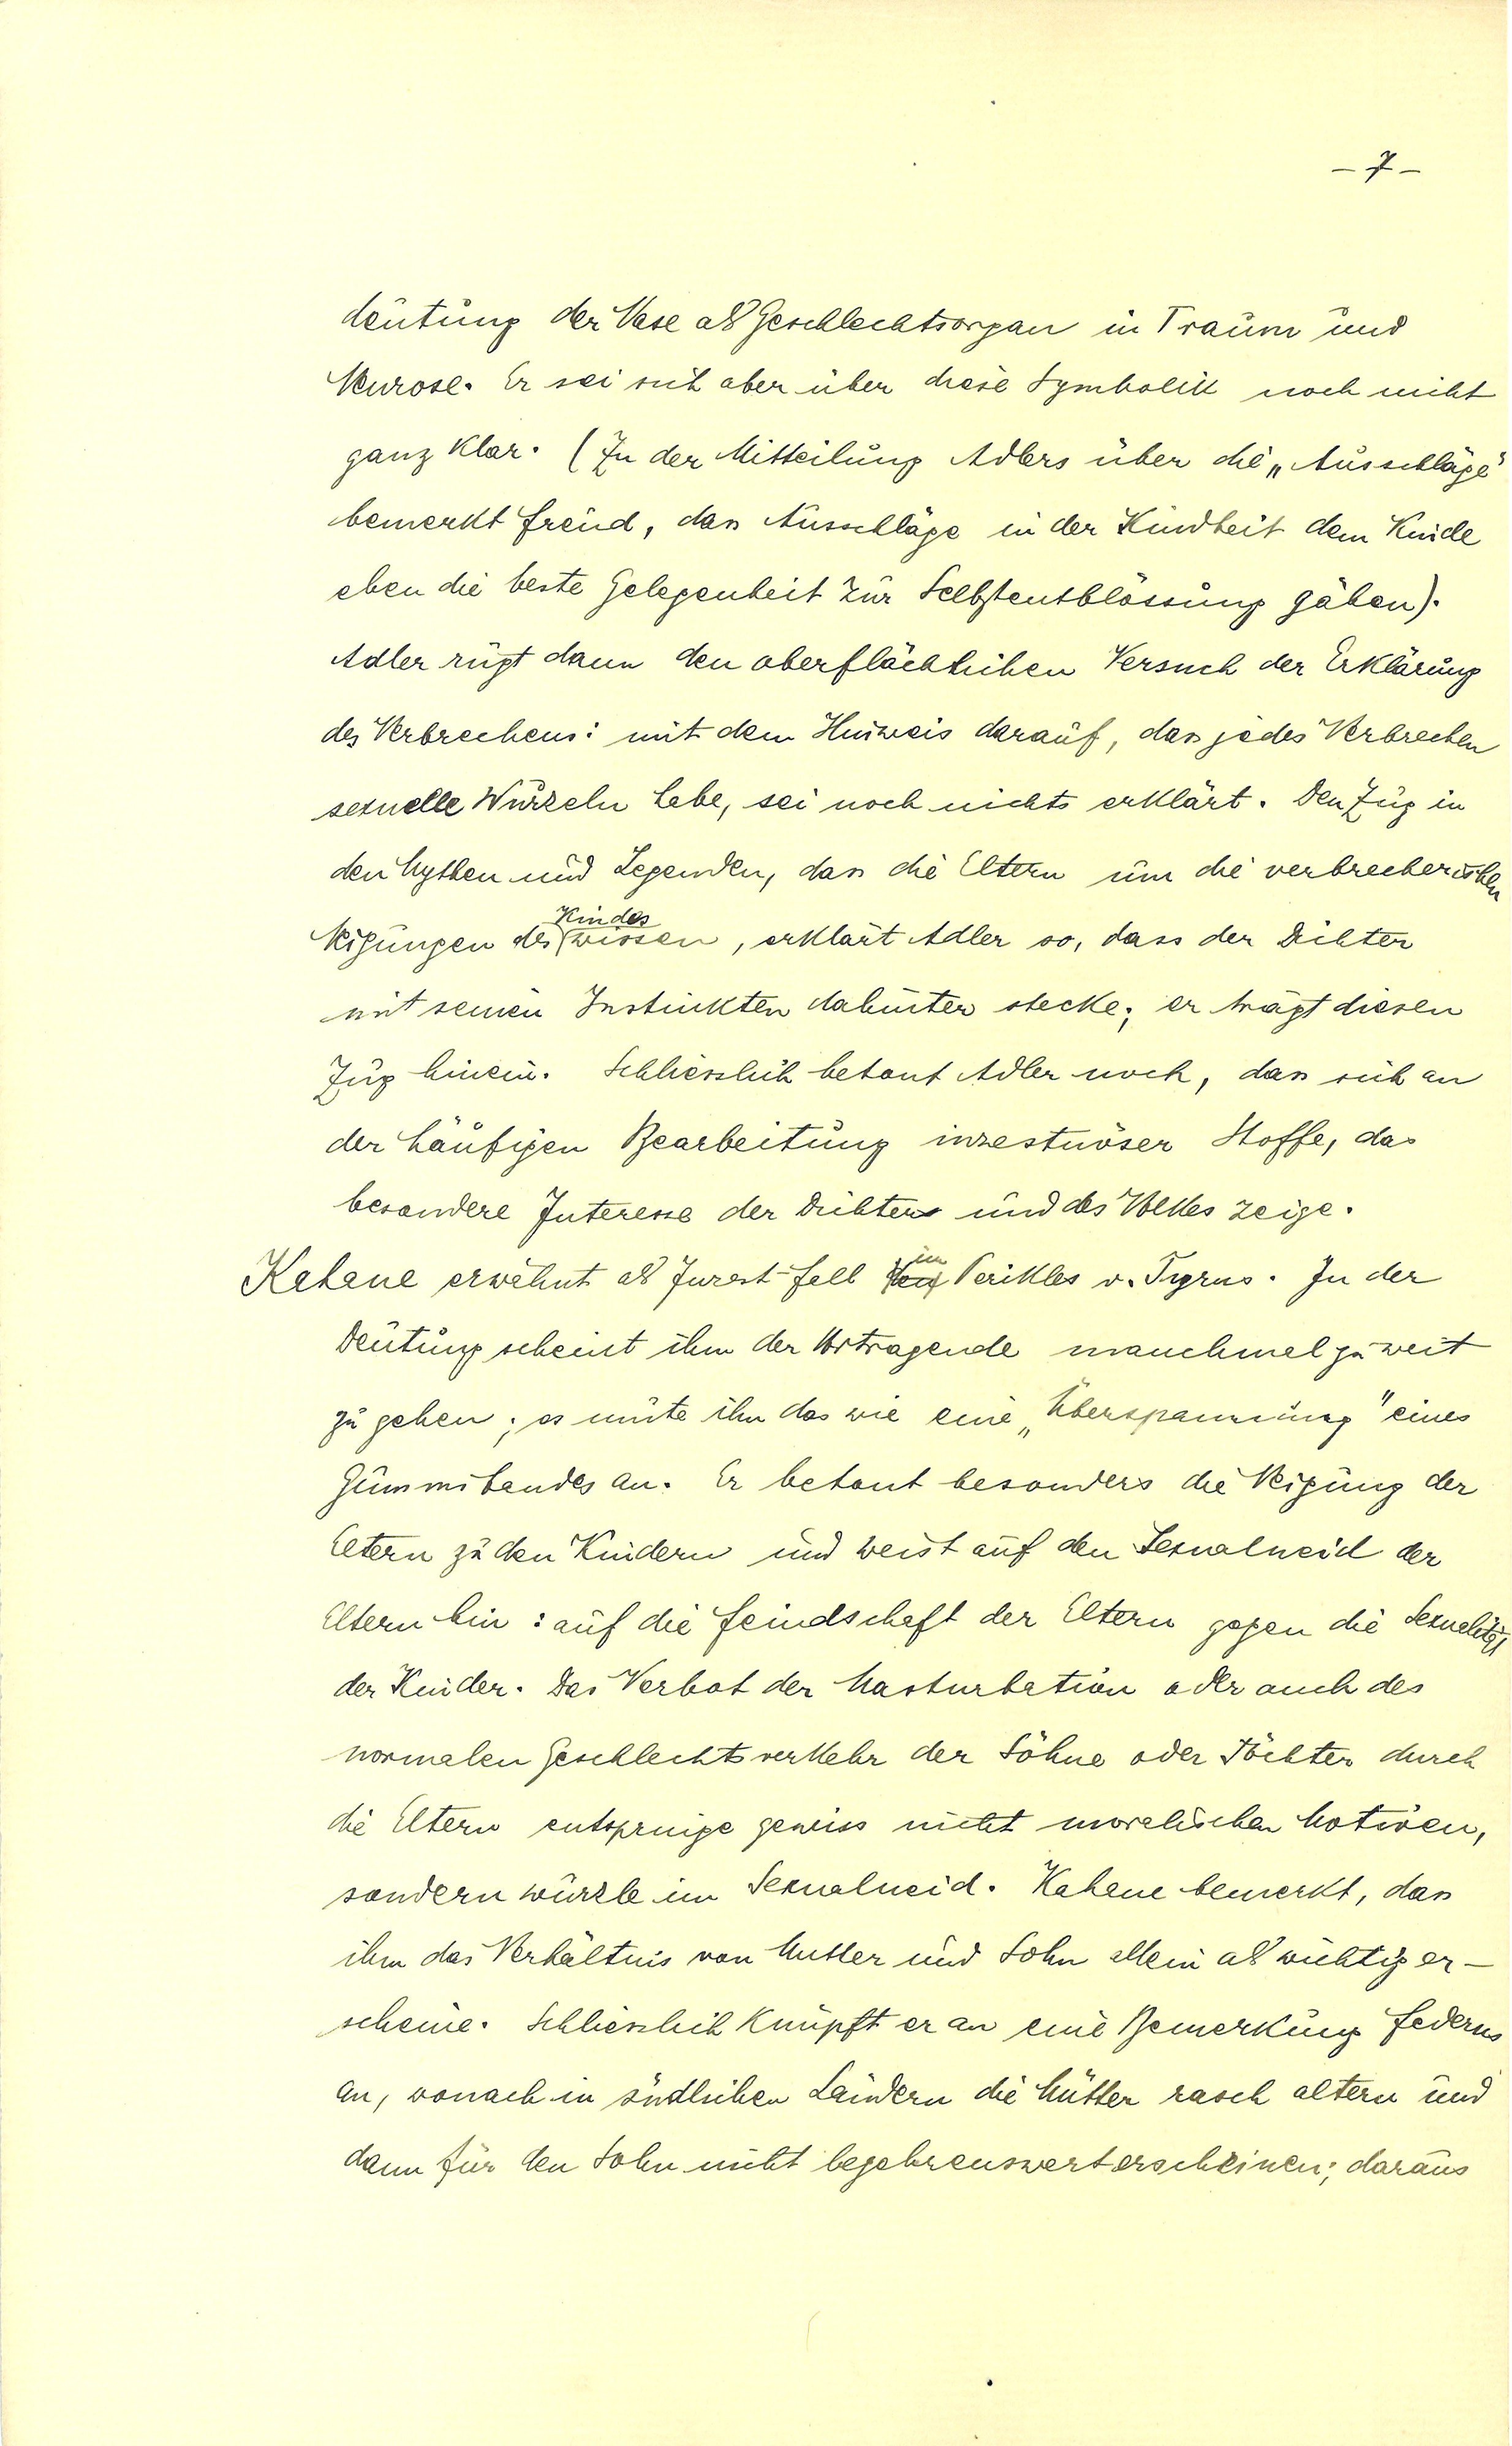 – 7 –
deutung der Vase als Geschlechtsorgan in Traum und
Neurose. Er sei sich aber über diese Symbolik noch nicht
ganz klar. (Zu der Mitteilung Adlers über die „Ausschläge"
bemerkt Freud, dass Ausschläge in der Kindheit dem Kinde
eben die beste Gelegenheit zur Selbstentblössung gäben).
Adler rügt dann den oberflächlichen Versuch der Erklärung
des Verbrechens: mit dem Hinweis darauf, dass jedes Verbrechen
sexuelle Wurzeln habe, sei noch nichts erklärt. Den Zug in
den Mythen und Legenden, dass die Eltern um die verbrecherischen
Neigungen des Kindes wissen, erklärt Adler so, dass der Dichter
mit seinen Instinkten dahinter stecke; er trägt diesen
Zug hinein. Schliesslich betont Adler noch, dass sich an
der häufigen Bearbeitung inzestuöser Stoffe, das
besondere Interesse der Dichter und des Volkes zeige.
Kahane erwähnt als Inzest-fall im Perikles v. Tyrus. In der
Deutung scheint ihm der Vortragende manchmal zu weit
zu gehen; es mute ihn das wie eine „Überspannung" eines
Gummibandes an. Er betont besonders die Neigung der
Eltern zu den Kindern und weist auf den Sexualneid der
Eltern hin: auf die Feindschaft der Eltern gegen die Sexualität
der Kinder. Das Verbot der Masturbation oder auch des
normalen Geschlechtsverkehr der Söhne oder Töchter durch
die Eltern entspringe gewiss nicht moralischen Motiven,
sondern wurzle im Sexualneid. Kahane bemerkt, dass
ihm das Verhältnis von Mutter und Sohn allein als wichtig er–
scheine. Schliesslich knüpft er an eine Bemerkung Federns
an, wonach in südlichen Ländern die Mütter rasch altern und
dann für den Sohn nicht begehrenswert erscheinen; daraus